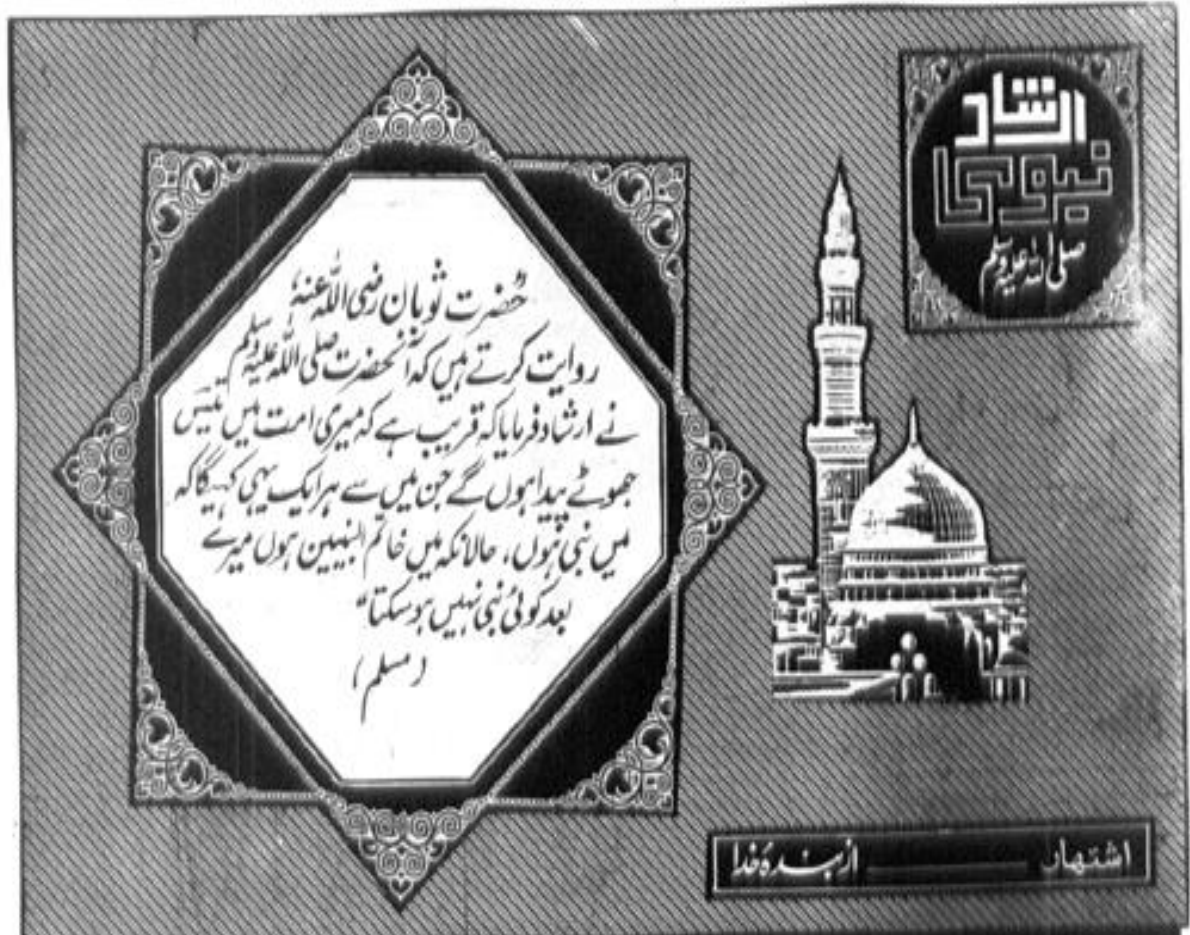 ارشاد
نبوی
صلی اللہ علیہ وسلم
حضرت ثوبان رضی اللہ عنہٗ
روایت کرتے ہیں کہ آنحضرت صلی اللہ علیہ وسلم
نے ارشاد فرمایا کہ قریب ہے کہ میری امت میں تیس
جھوٹے پیدا ہوں گے جن میں سے ہر ایک یہی کہیگا کہ
میں نبی ہوں، حالانکہ میں خاتم النبیین ہوں میرے
بعد کوئی نبی نہیں ہو سکتا“
(مسلم)
اشتہار ـــــــــ از بندۂ خدا